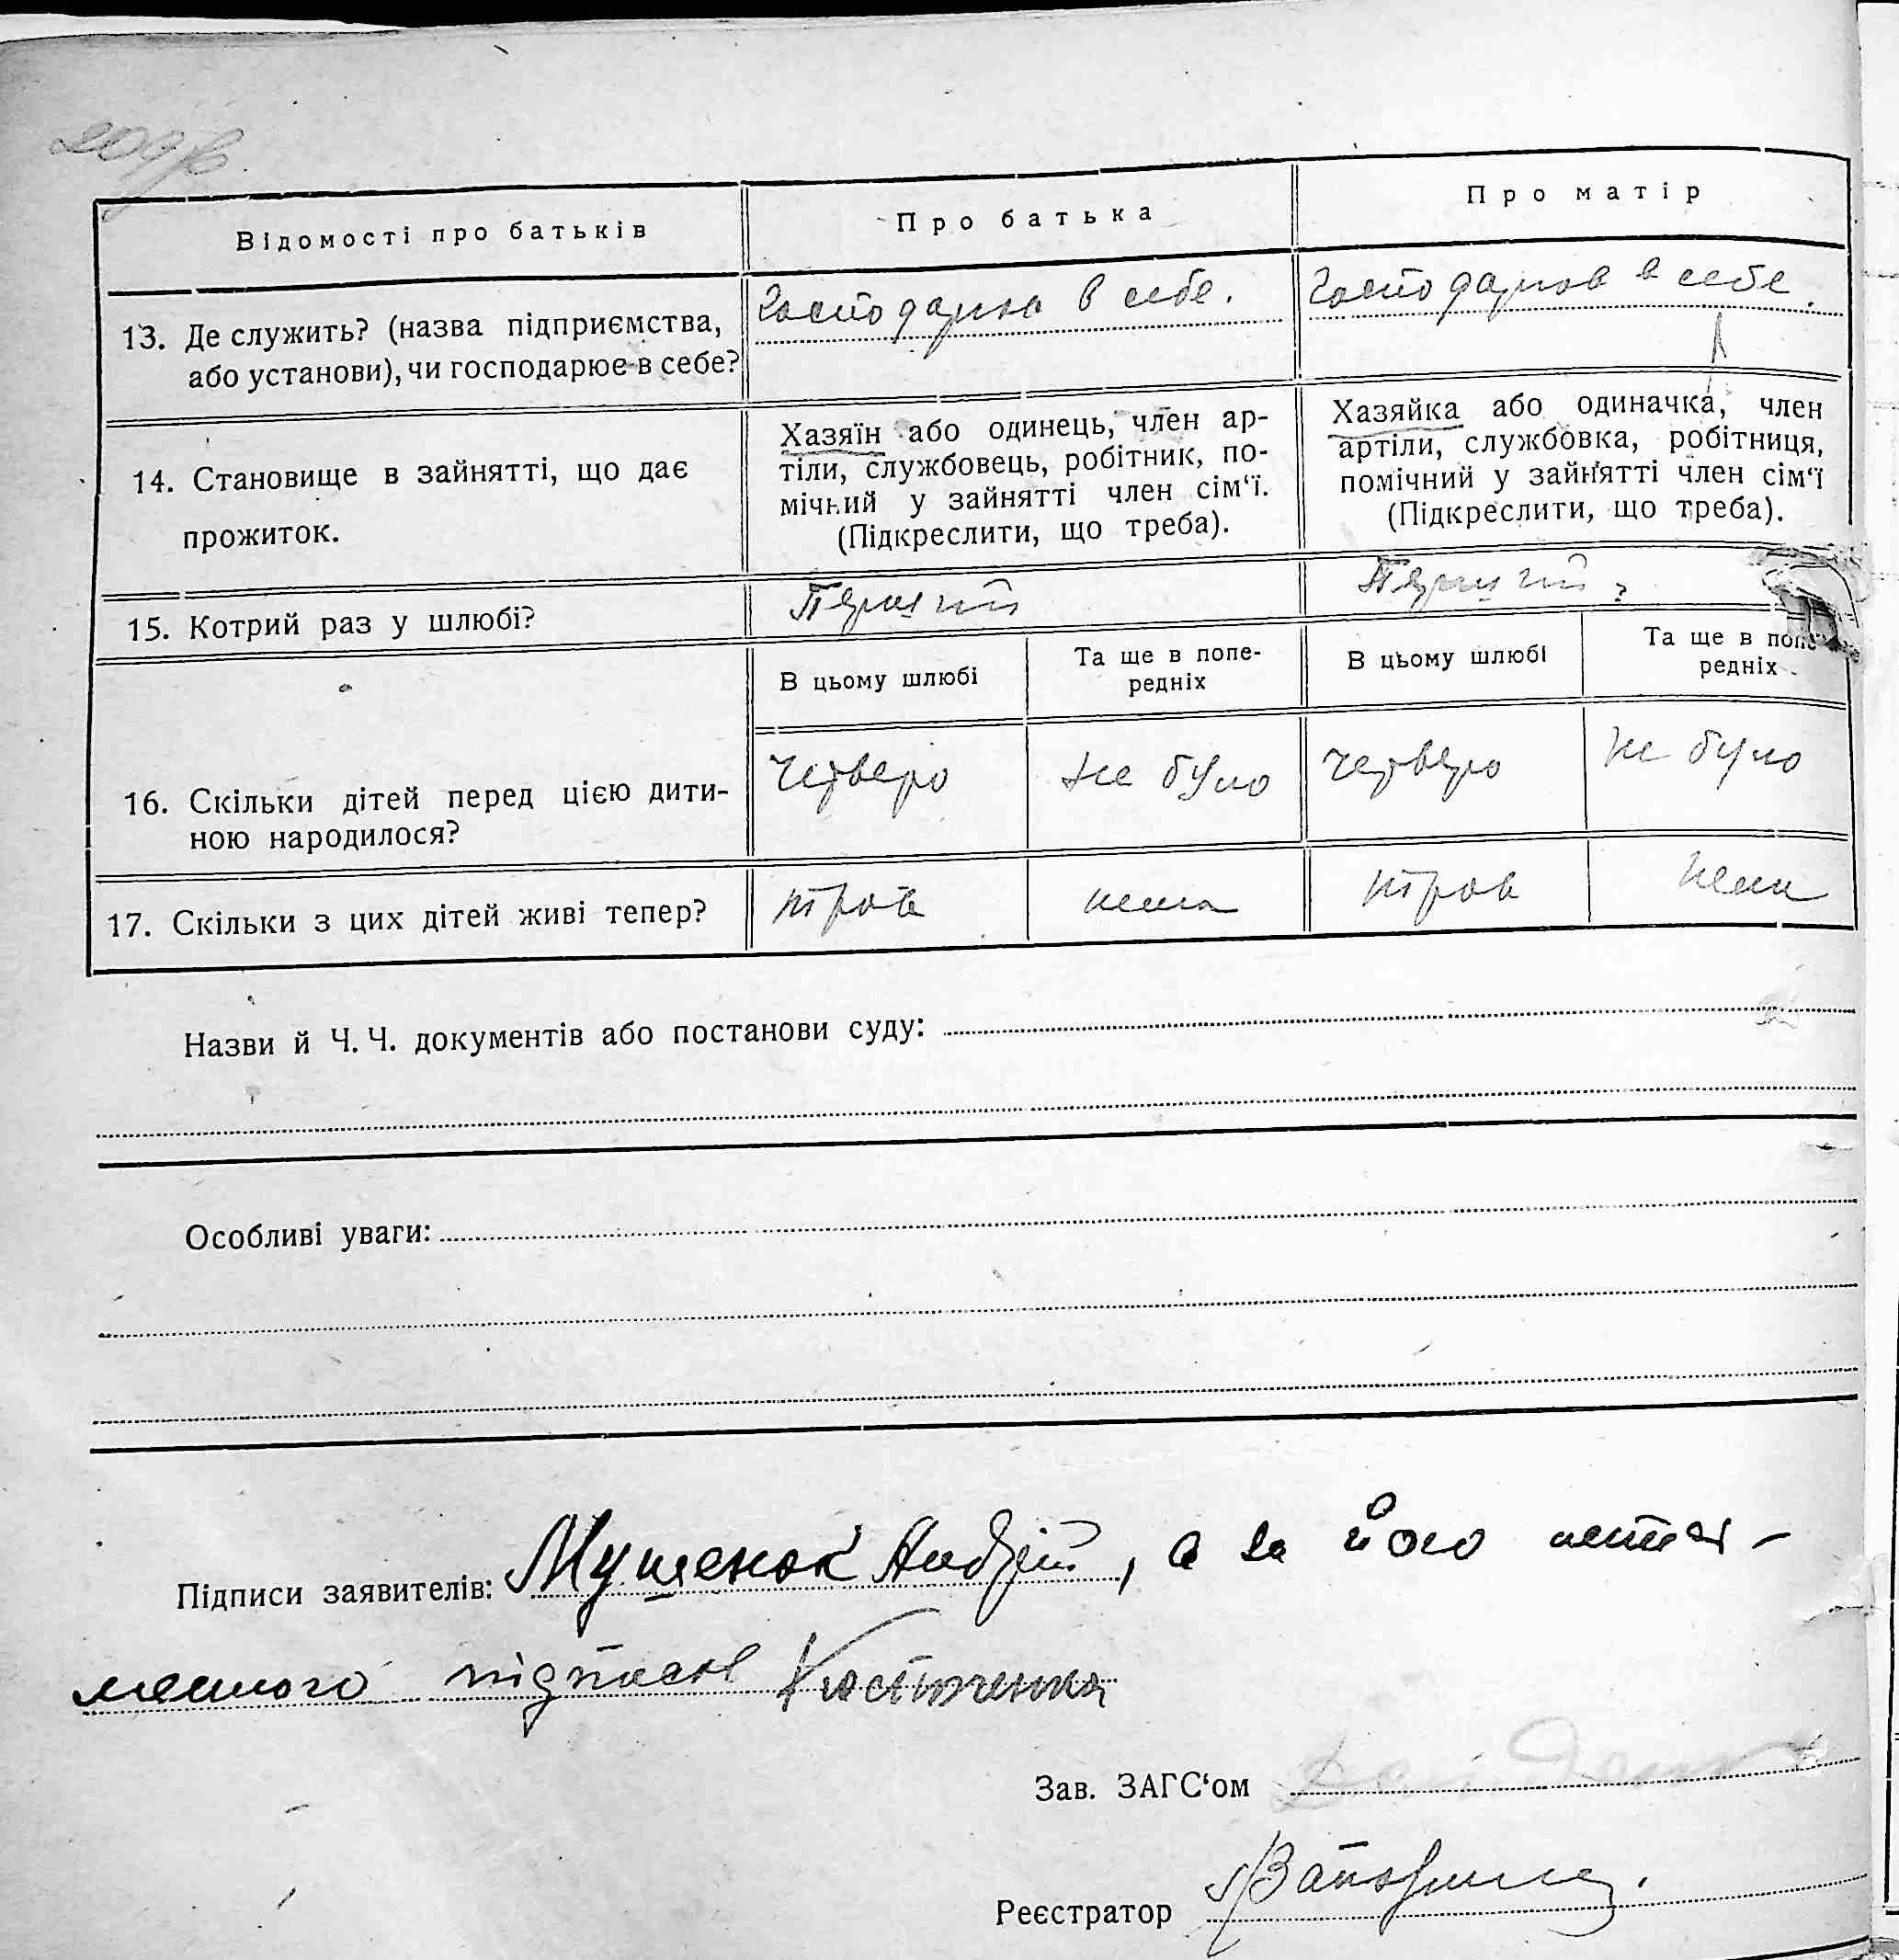 Відомості про батьків
Про батька
Про матір
13. Де служить? (назва підприємства,
або установи), чи господарює в себе?
Господарює в себе.
Господарює в себе.
14. Становище в зайнятті, що дає
прожиток.
Хазяїн або одинець, член ар-
тіли, службовець, робітник, по-
мічний у зайнятті член сім'ї.
(Підкреслити, що треба).
Хазяйка або одиначка, член
артіли, службовка, робітниця,
помічний у зайнятті член сім'ї
(Підкреслити, що треба).
15. Котрий раз у шлюбі?
Перший
Перший
В цьому шлюбі
Та ще в попе-
редніх
В цьому шлюбі
Та ще в попе-
редніх
16. Скільки дітей перед цією дити-
ною народилося?
Четверо
Не було
Четверо
Не було
17. Скільки з цих дітей живі тепер?
троє
нема
троє
нема
Назви й Ч. Ч. документів або постанови суду:
Особливі уваги:
Підписи заявителів: Мушенок Андрій, а за його негра-
мотного підписав
Зав. ЗАГС'ом
Реєстратор